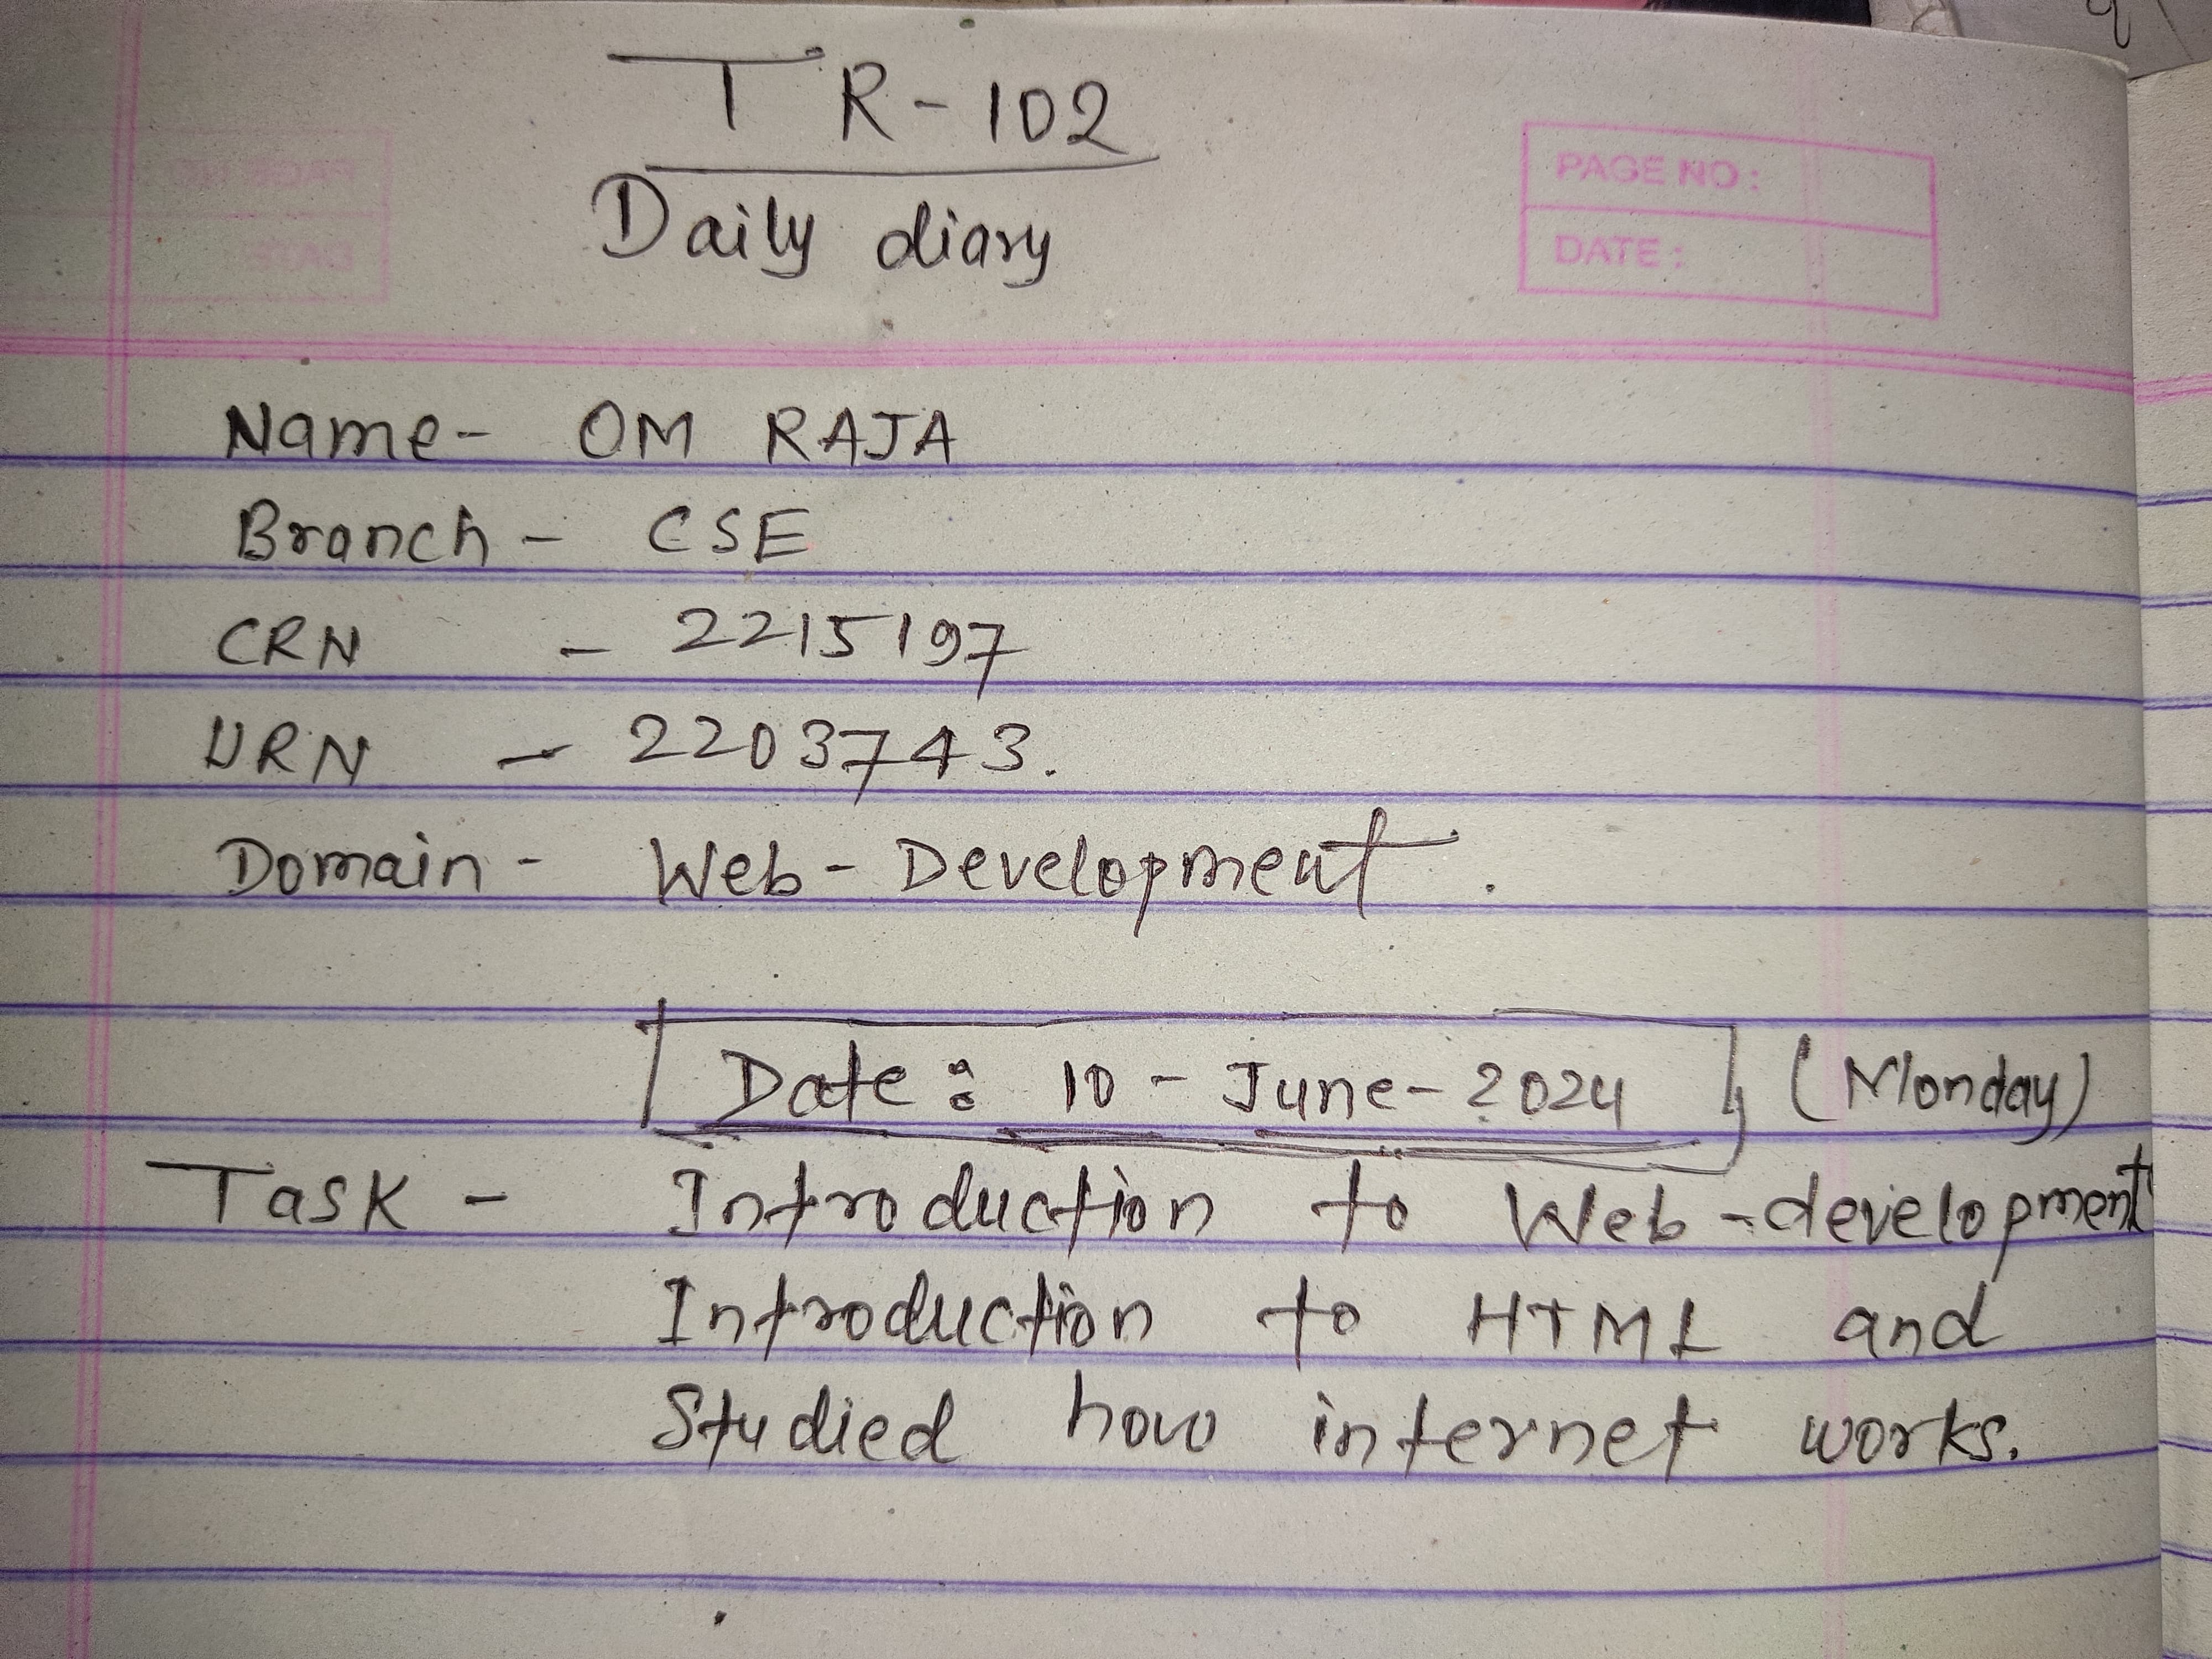 TR-102
Daily diary
PAGE NO :
DATE :
Name- OM RAJA
Branch - CSE
CRN - 2215197
URN - 2203743.
Domain - Web-Development.
Date : 10 - June - 2024 (Monday)
Task - Introduction to Web-development
Introduction to HTML and
Studied how internet works.